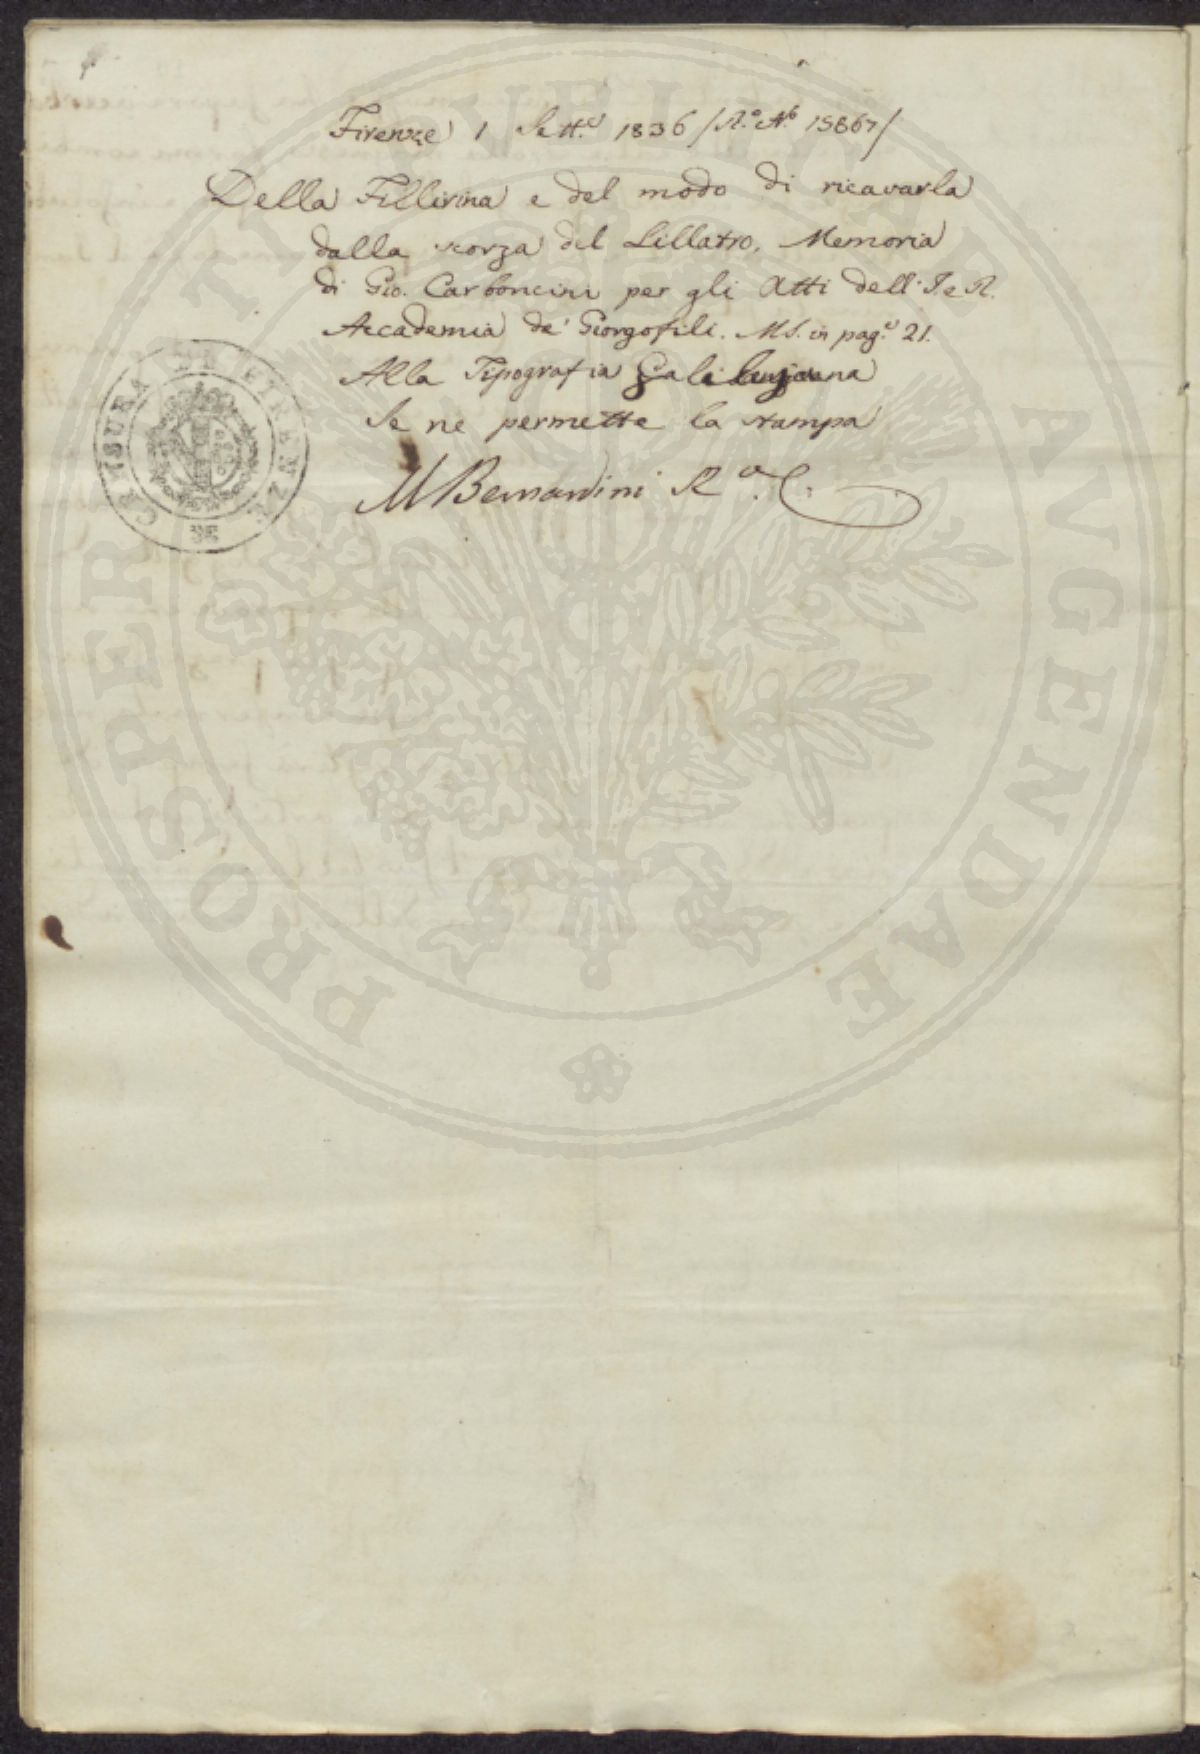 Firenze 1 Sett.e 1836 /R.o A.b 15867/
Della Fillirina e del modo di ricavarla
dalla scorza del Lillatro, Memoria
di Gio. Carboncini per gli Atti dell'I. e R.
Accademia de' Giorgofili. MS. in pag.e 21.
Alla Tipografia
Se ne permette la stampa
M Bernardini R.o C.
CENSURA DI FIRENZE
PROSPERITATI PUBLICAE AVGENDAE